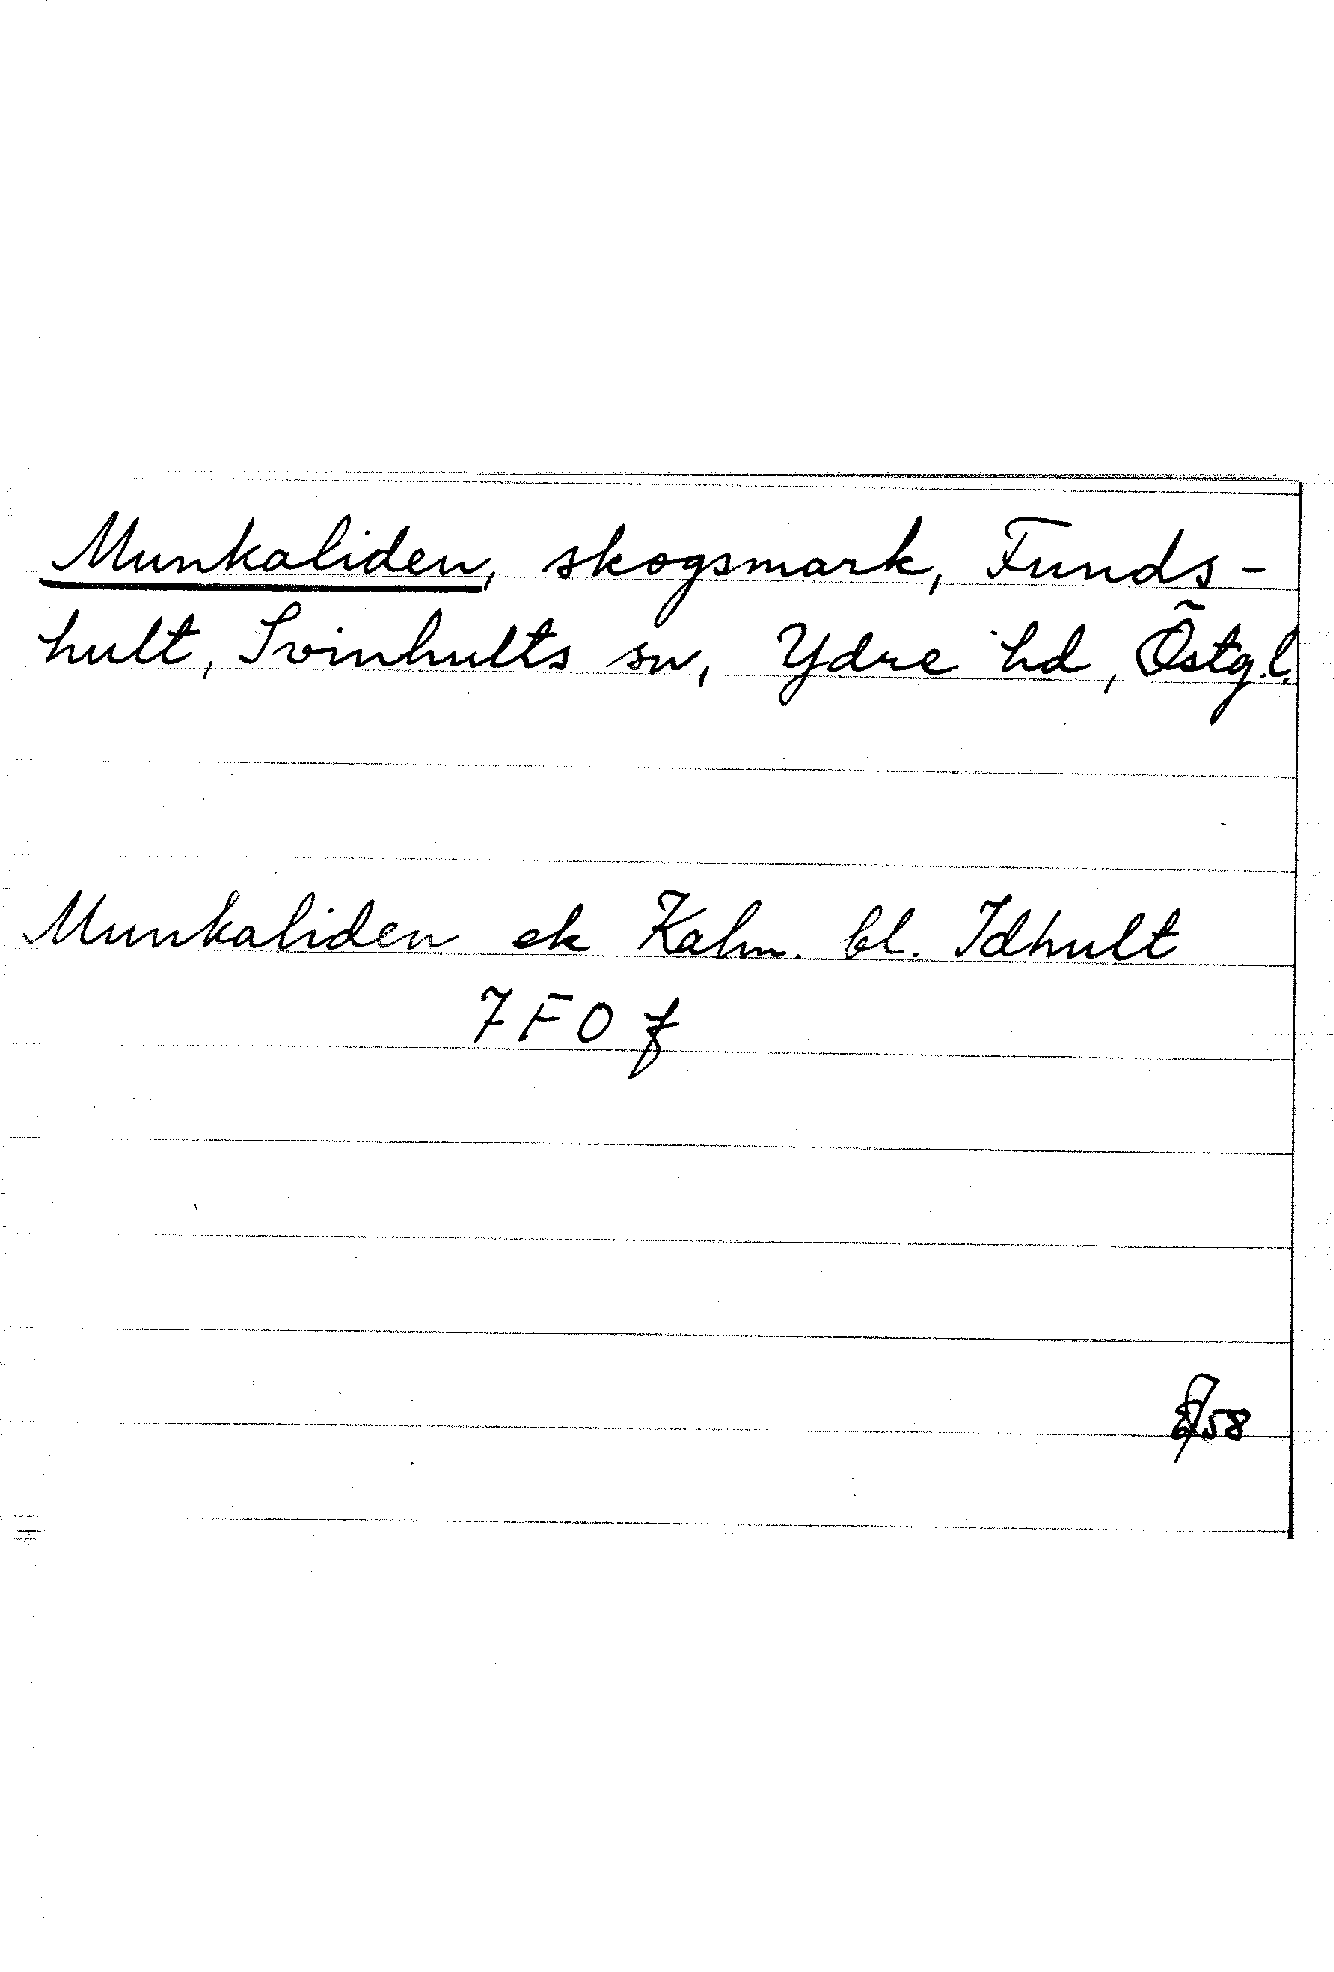 Munkaliden, skogsmark, Funds-
hult, Svinhults sn, Ydre hd, Östg.l.
Munkaliden ek Kalm. bl. Idhult
7 F O f
58